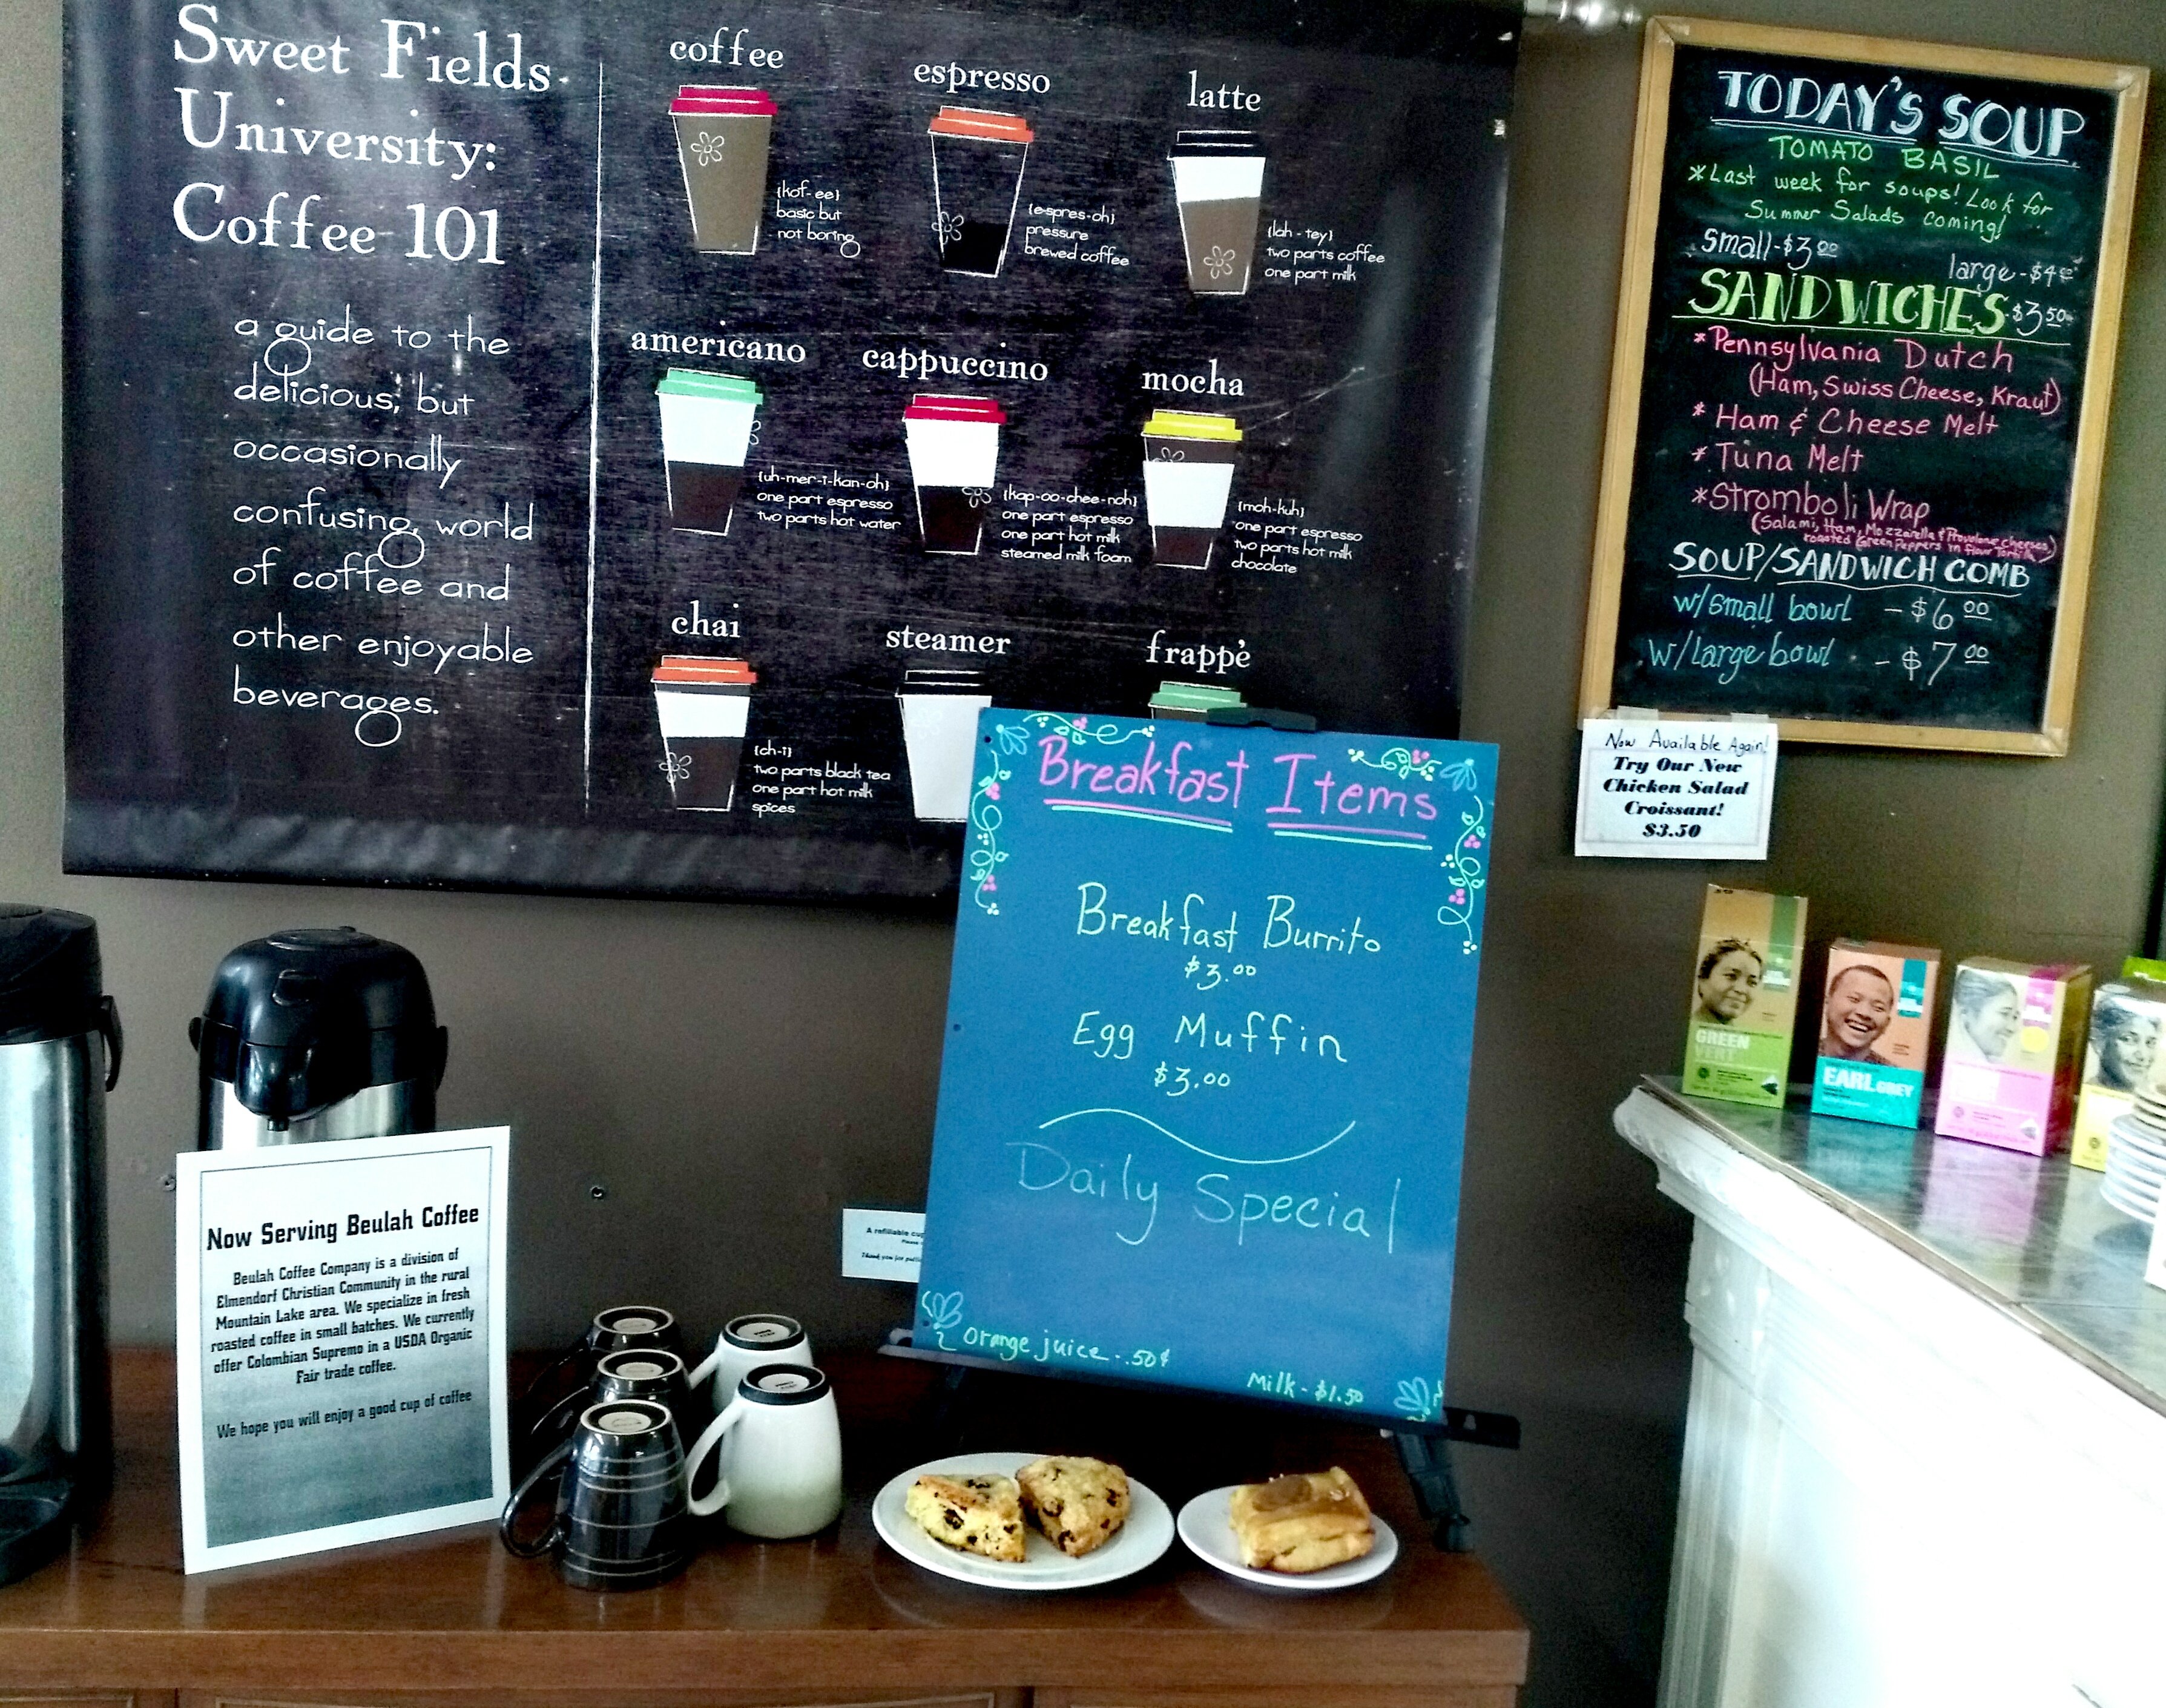 Sweet Fields
University:
Coffee 101
a guide to the
delicious, but
occasionally
confusing, world
of coffee and
other enjoyable
beverages.
coffee
{kof-ee}
basic but
not boring
espresso
{e-spres-oh}
pressure
brewed coffee
latte
{lah-tey}
two parts coffee
one part milk
americano
{uh-mer-i-kan-oh}
one part espresso
two parts hot water
cappuccino
{kap-oo-chee-noh}
one part espresso
one part hot milk
steamed milk foam
mocha
{moh-kuh}
one part espresso
two parts hot milk
chocolate
chai
{ch-i}
two parts black tea
one part hot milk
spices
steamer
frappè
TODAY'S SOUP
TOMATO BASIL
*Last week for soups! Look for
Summer Salads coming!
Small-$3.00
large-$4
SANDWICHES-$3.50
*Pennsylvania Dutch
(Ham, Swiss Cheese, Kraut)
* Ham & Cheese Melt
* Tuna Melt
*Stromboli Wrap
(Salami, Ham, Mozzarella & Provolone cheeses,
roasted Green Peppers in flour tortilla)
SOUP/SANDWICH COMB
w/small bowl - $6.00
w/large bowl - $7.00
Now Available Again!
Try Our New
Chicken Salad
Croissant!
$3.50
Breakfast Items
Breakfast Burrito
$3.00
Egg Muffin
$3.00
Daily Special
Orange juice - .50¢
Milk - $1.50
Now Serving Beulah Coffee
Beulah Coffee Company is a division of
Elmendorf Christian Community in the rural
Mountain Lake area. We specialize in fresh
roasted coffee in small batches. We currently
offer Colombian Supremo in a USDA Organic
Fair trade coffee.
We hope you will enjoy a good cup of coffee
A refillable cup
Please
Thank you for
GREEN
VERT
EARL GREY